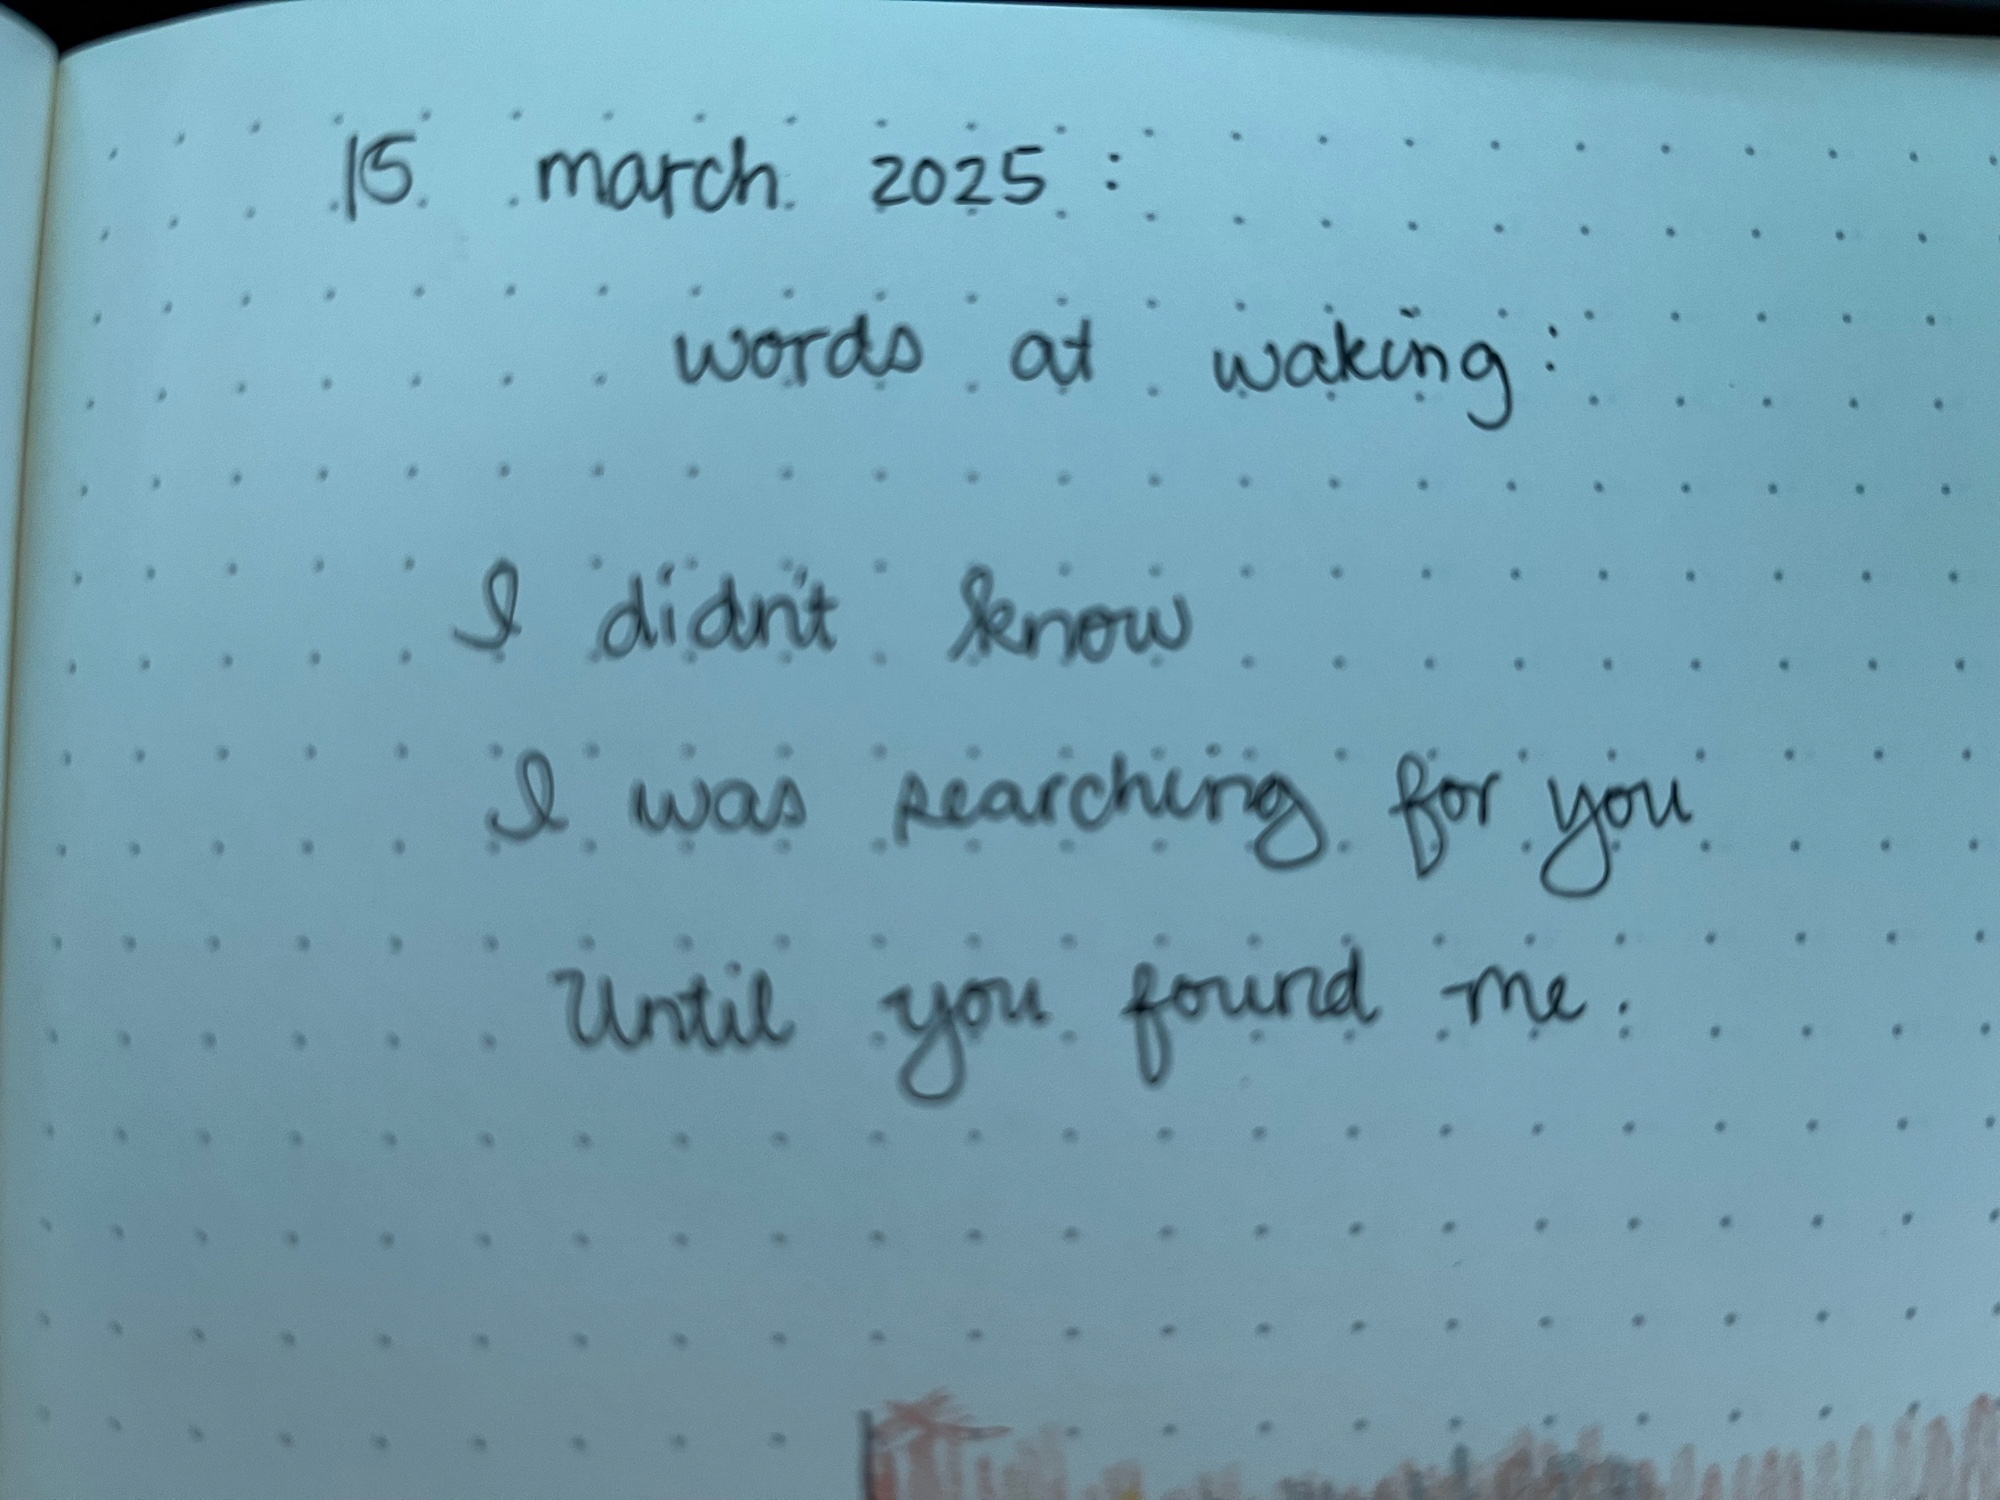 15 march 2025 :
words at waking :
I didn't know
I was searching for you
Until you found me.